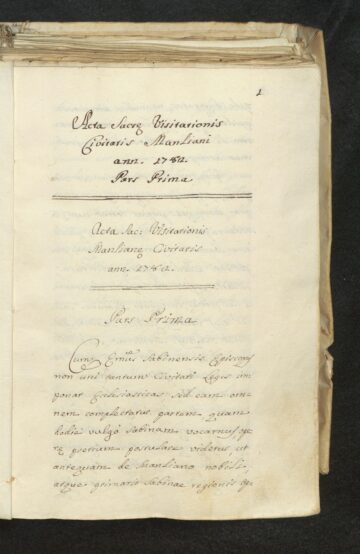 1
Acta Sacrę Visitationis
Civitatis Manliani
ann. 1782.
Pars Prima
Acta Sac: Visitationis
Manlianę Civitatis
ann. 1782.
Pars Prima
Cum Emus Sabinensis Episcopus
non uni tantum Civitati leges im
ponat Ecclesiasticas, sed eam om
nem complectatur partem, quam
hodie vulgò Sabinam vocamus,
pretium postulare videtur, ut
antequam de Manliano nobili,
atque primario Sabinae regionis